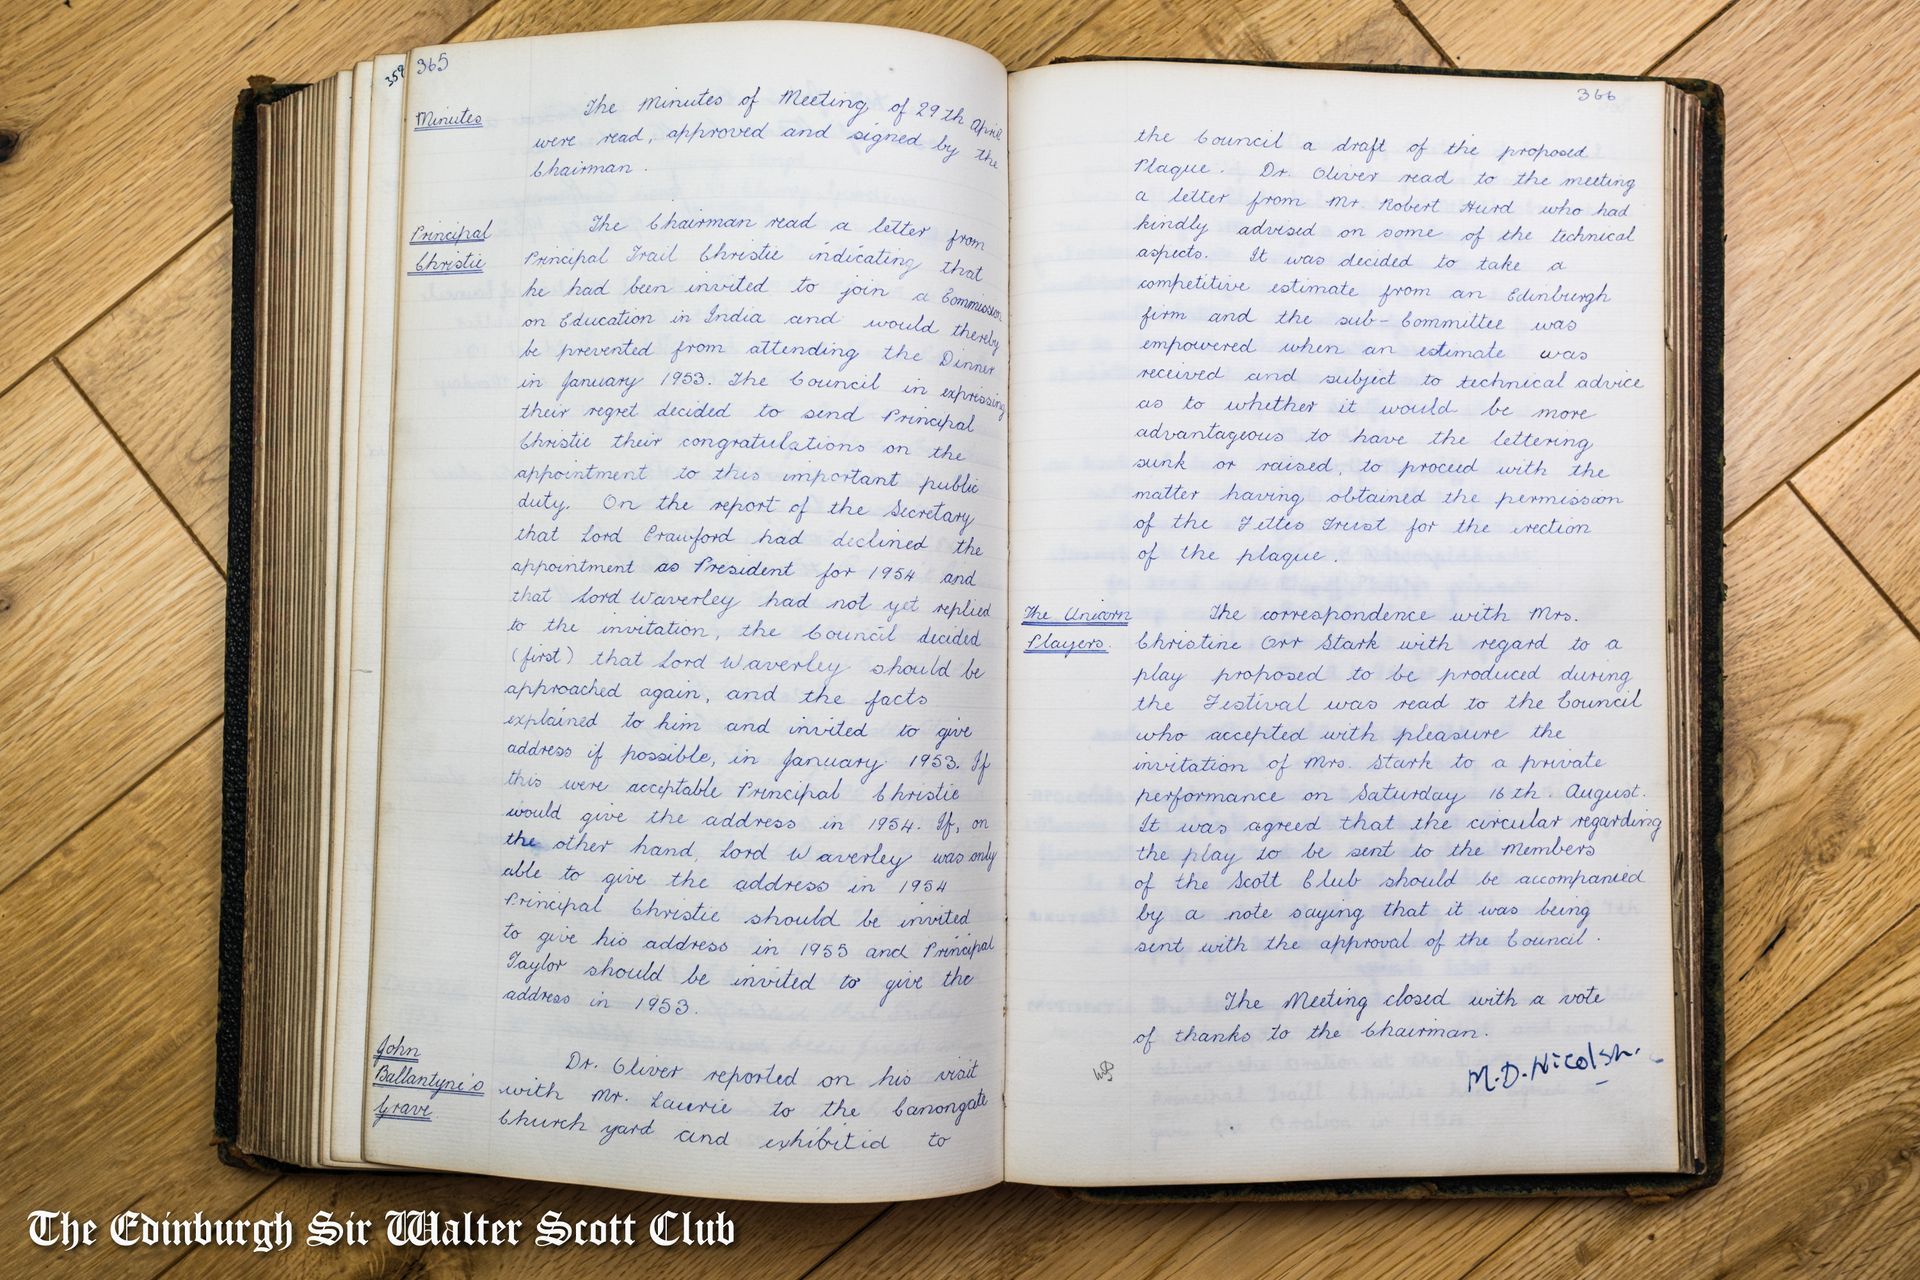 359
365
Minutes
The Minutes of Meeting of 29th April
were read, approved and signed by the
Chairman.
Principal
Christie
The Chairman read a letter from
Principal Trail Christie indicating that
he had been invited to join a Commission
on Education in India and would thereby
be prevented from attending the Dinner
in January 1953. The Council in expressing
their regret decided to send Principal
Christie their congratulations on the
appointment to this important public
duty. On the report of the Secretary
that Lord Crawford had declined the
appointment as President for 1954 and
that Lord Waverley had not yet replied
to the invitation, the Council decided
(first) that Lord Waverley should be
approached again, and the facts
explained to him and invited to give
address if possible, in January 1953. If
this were acceptable Principal Christie
would give the address in 1954. If, on
the other hand, Lord Waverley was only
able to give the address in 1954
Principal Christie should be invited
to give his address in 1955 and Principal
Taylor should be invited to give the
address in 1953.
John
Ballantyne's
Grave
Dr. Oliver reported on his visit
with Mr. Laurie to the Canongate
Church yard and exhibited to
366
the Council a draft of the proposed
Plaque. Dr. Oliver read to the meeting
a letter from Mr Robert Hurd who had
kindly advised on some of the technical
aspects. It was decided to take a
competitive estimate from an Edinburgh
firm and the sub-Committee was
empowered when an estimate was
received and subject to technical advice
as to whether it would be more
advantageous to have the lettering
sunk or raised, to proceed with the
matter having obtained the permission
of the Fettes Trust for the erection
of the plaque.
The Unicorn
Players.
The correspondence with Mrs.
Christine Orr Stark with regard to a
play proposed to be produced during
the Festival was read to the Council
who accepted with pleasure the
invitation of Mrs. Stark to a private
performance on Saturday 16th. August.
It was agreed that the circular regarding
the play to be sent to the Members
of the Scott Club should be accompanied
by a note saying that it was being
sent with the approval of the Council.
The Meeting closed with a vote
of thanks to the Chairman.
M.D. Nicolson.
The Edinburgh Sir Walter Scott Club